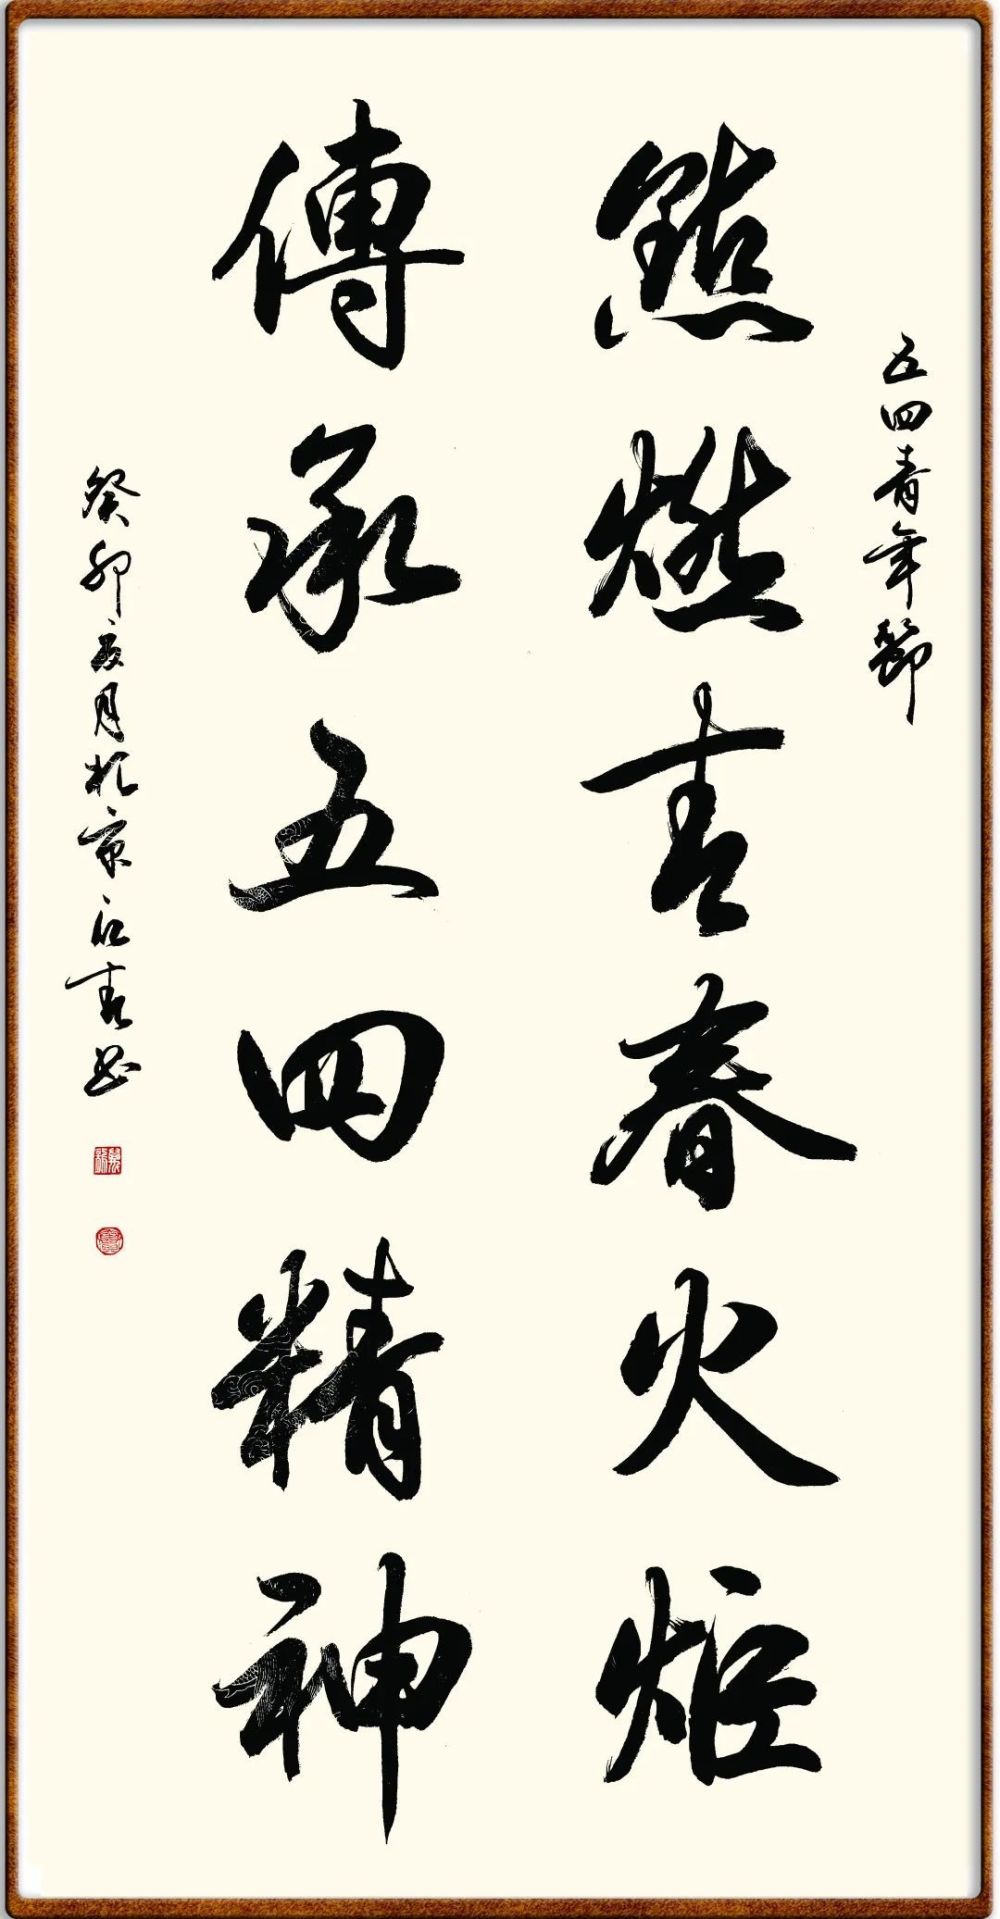 五四青年節
點燃青春火炬
傳承五四精神
癸卯夏月於京江春書